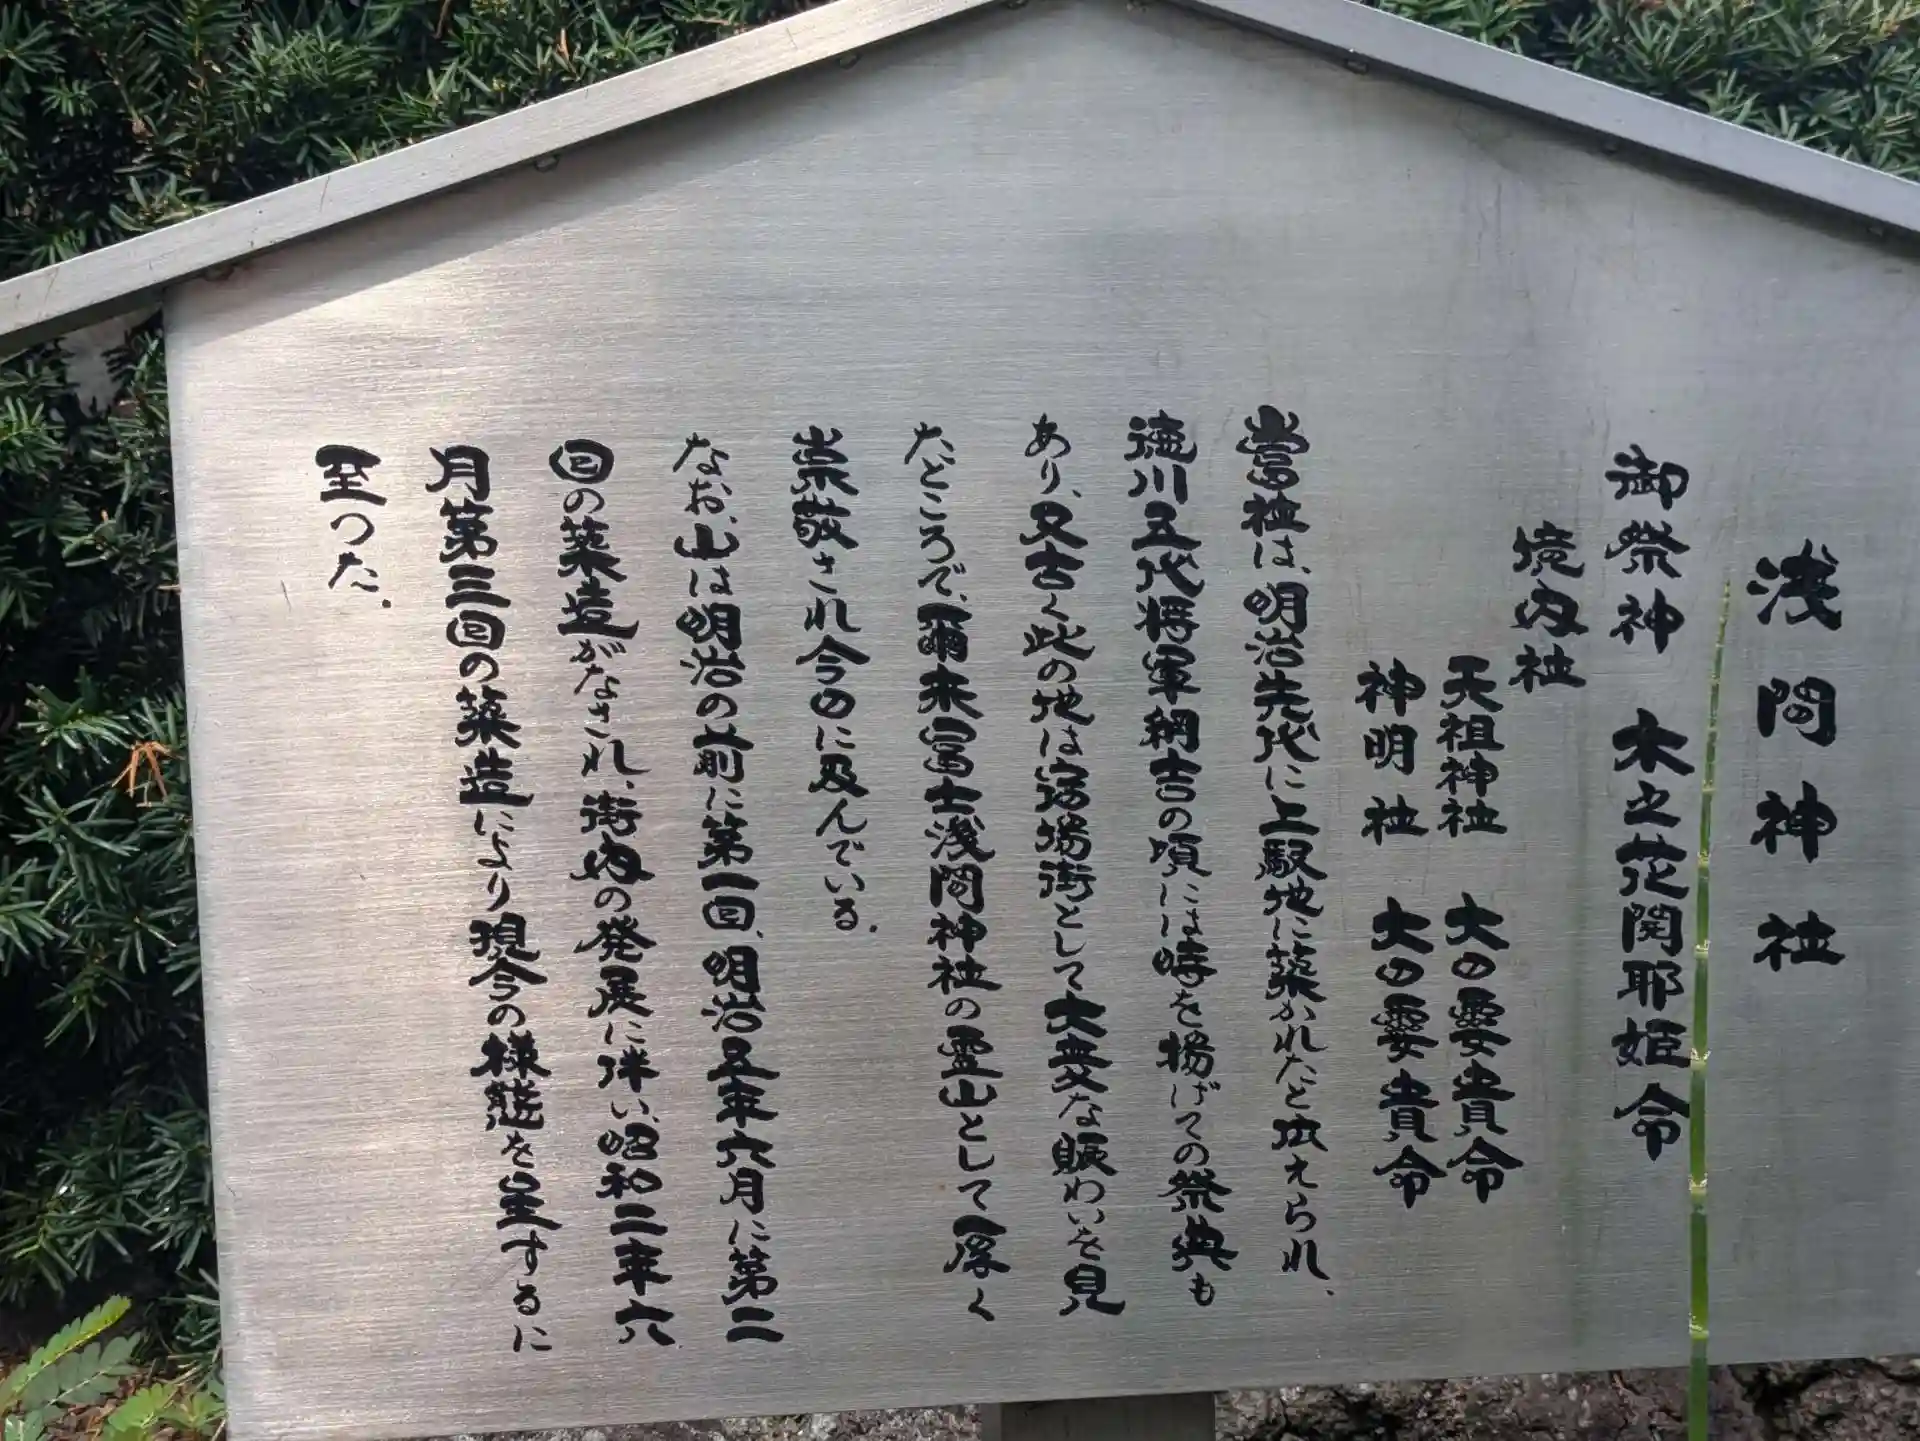 浅間神社
御祭神　木之花開耶姫命
境内社
天祖神社　大の要貴命
神明社　大の要貴命
當社は、明治先代に上駅地に築かれたと伝えられ、
徳川五代将軍綱吉の頃には時を揚げての祭典も
あり、又古く此の地は宿場街として大変な賑わいを見
たところで、爾来富士浅間神社の霊山として厚く
崇敬され今日に及んでいる.
なお、山は明治の前に第一回、明治五年六月に第二
回の築造がなされ、街内の発展に伴い、昭和二年六
月第三回の築造により現今の様態を呈するに
至つた.